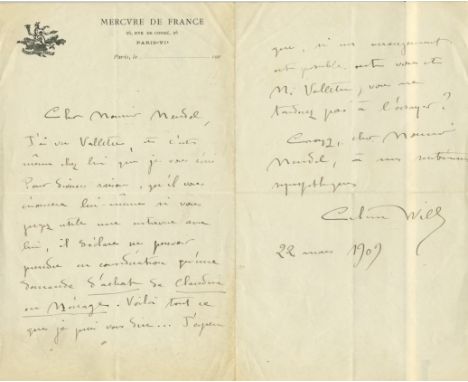 MERCVRE DE FRANCE
26, RVE DE CONDÉ, 26
PARIS-VIe
Paris, le
Cher Monsieur Mendel,
J'ai vu Vallette, et c'est
même chez lui que je vous écris
Pour diverses raisons, qu'il vous
énoncera lui-même si vous
jugez utile une entrevue avec
lui, il déclare ne pouvoir
prendre en considération qu'une
demande d'achat de Claudine
en Ménage. Voilà tout ce
que je puis vous dire... J'espère
que, si un arrangement
est possible entre vous et
M. Vallette, vous ne
tardez pas à l'essayer?
Croyez, cher Monsieur
Mendel, à mes sentiments
sympathiques
Willy
22 mars 1909